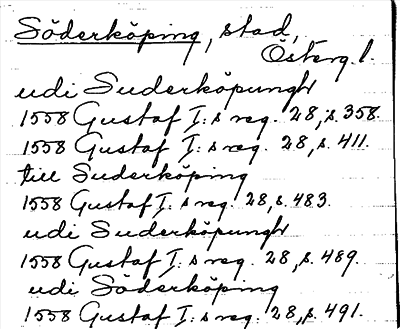 Söderköping, stad,
Österg.l.
udi Suderköpungh
1558 Gustaf I:s reg. 28, s. 358.
1558 Gustaf I:s reg. 28, s. 411.
till Suderköping
1558 Gustaf I:s reg. 28, s. 483.
udi Suderköpungh
1558 Gustaf I:s reg. 28, s. 489.
udi Söderköping
1558 Gustaf I:s reg. 28, s. 491.